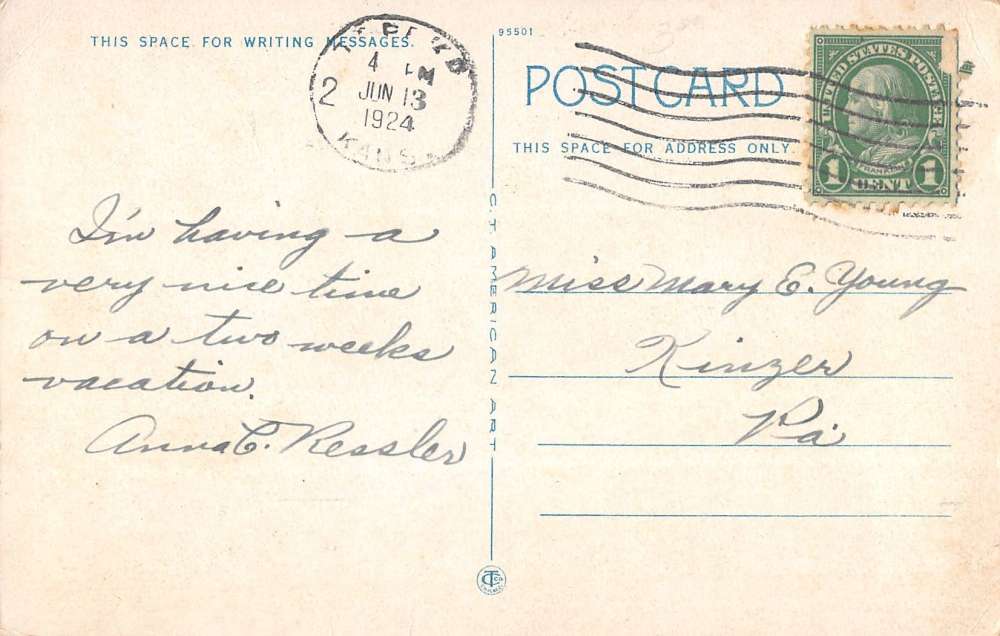 THIS SPACE FOR WRITING MESSAGES.
4 PM
JUN 13
1924
2
KANS.
95501
POST CARD
THIS SPACE FOR ADDRESS ONLY.
UNITED STATES POSTAGE
FRANKLIN
1 CENT 1
I'm having a
very nice time
on a two weeks
vacation.
Anna C. Ressler
C.T. AMERICAN ART
Miss Mary E. Young
Kinzer
Pa